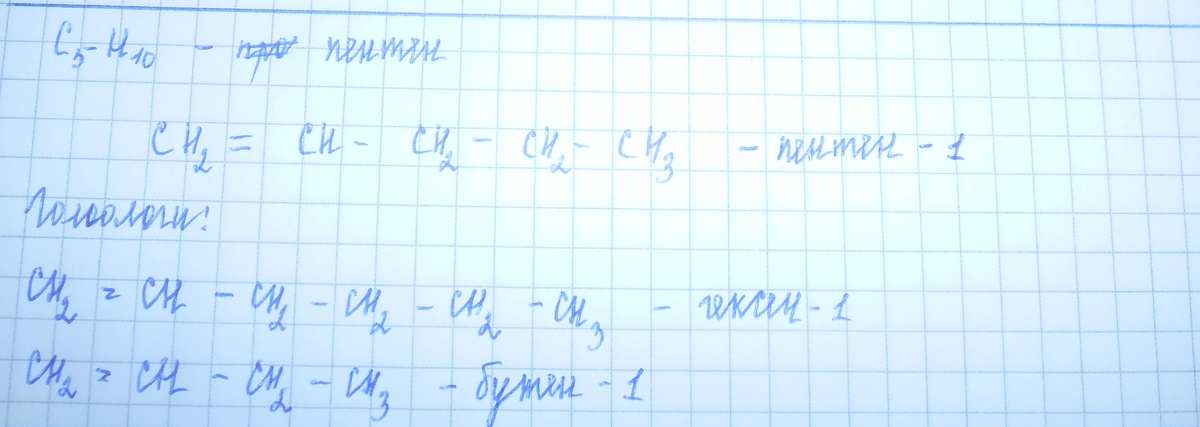 C₅H₁₀ - пентен
CH₂ = CH - CH₂ - CH₂ - CH₃ - пентен - 1
Гомологи:
CH₂ = CH - CH₂ - CH₂ - CH₂ - CH₃ - гексен - 1
CH₂ = CH - CH₂ - CH₃ - бутен - 1